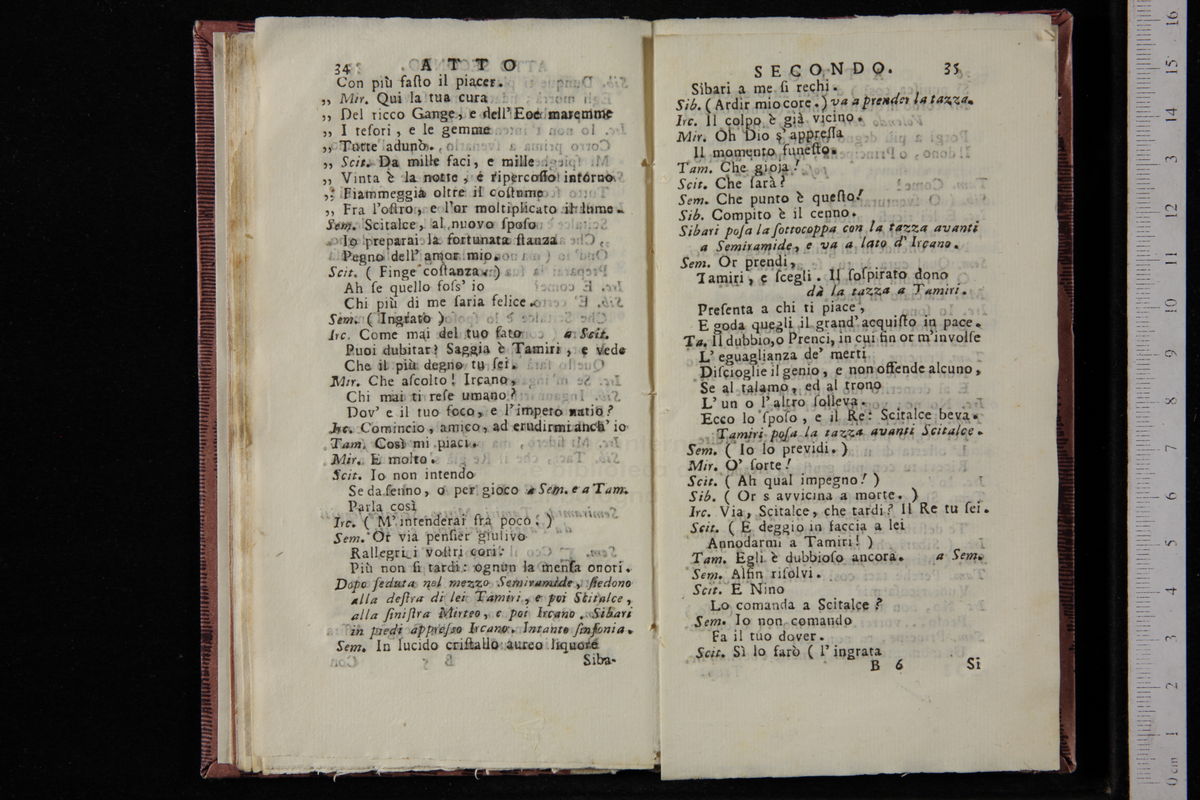 34 ATTO
Con più faſto il piacer.
,, Mir. Qui la tua cura
,, Del ricco Gange, e dell' Eoe maremme
,, I teſori, e le gemme
,, Tutte adunò.
,, Scit. Da mille faci, e mille
,, Vinta è la notte, e ripercoſſo intorno
,, Fiammeggia oltre il coſtume
,, Fra l'oſtro, e l'or moltiplicato il lume.
Sem. Scitalce, al nuovo ſpoſo
Io preparai la fortunata ſtanza
Pegno dell' amor mio.
Scit. ( Finge coſtanza. )
Ah ſe quello foſs' io
Chi più di me ſaria felice.
Sem. ( Ingrato )
Irc. Come mai del tuo fato a Scit.
Puoi dubitar? Saggia è Tamiri, e vede
Che il più degno tu ſei.
Mir. Che aſcolto! Ircano,
Chi mai ti reſe umano?
Dov' e il tuo foco, e l'impeto natio?
Irc. Comincio, amico, ad erudirmi anch' io
Tam. Così mi piaci.
Mir. E molto.
Scit. Io non intendo
Se da ſenno, o per gioco a Sem. e a Tam.
Parla così
Irc. ( M'intenderai fra poco. )
Sem. Or via penſier giulivo
Rallegri i voſtri cori:
Più non ſi tardi: ognun la menſa onori.
Dopo ſeduta nel mezzo Semiramide, ſiedono
alla deſtra di lei Tamiri, e poi Scitalce,
alla ſiniſtra Mirteo, e poi Ircano. Sibari
in piedi appreſſo Ircano. Intanto ſinfonia.
Sem. In lucido criſtallo aureo liquore
B 5 Siba-
SECONDO. 35
Sibari a me ſi rechi.
Sib. ( Ardir mio core. ) va a prender la tazza.
Irc. Il colpo è già vicino.
Mir. Oh Dio s'appreſſa
Il momento funeſto.
Tam. Che gioja!
Scit. Che ſarà?
Sem. Che punto è queſto!
Sib. Compito è il cenno.
Sibari poſa la ſottocoppa con la tazza avanti
a Semiramide, e va a lato d' Ircano.
Sem. Or prendi,
Tamiri, e ſcegli. Il ſoſpirato dono
dà la tazza a Tamiri.
Preſenta a chi ti piace,
E goda quegli il grand' acquiſto in pace.
Ta. Il dubbio, o Prenci, in cui fin or m'involſe
L' eguaglianza de' merti
Diſcioglie il genio, e non offende alcuno,
Se al talamo, ed al trono
L' un o l' altro ſolleva.
Ecco lo ſpoſo, e il Re: Scitalce beva.
Tamiri poſa la tazza avanti Scitalce.
Sem. ( Io lo previdi. )
Mir. O' ſorte!
Scit. ( Ah qual impegno! )
Sib. ( Or s avvicina a morte. )
Irc. Via, Scitalce, che tardi? Il Re tu ſei.
Scit. ( E deggio in faccia a lei
Annodarmi a Tamiri! )
Tam. Egli è dubbioſo ancora. a Sem.
Sem. Alfin riſolvi.
Scit. E Nino
Lo comanda a Scitalce?
Sem. Io non comando
Fa il tuo dover.
Scit. Sì lo farò ( l' ingrata
B 6 Si